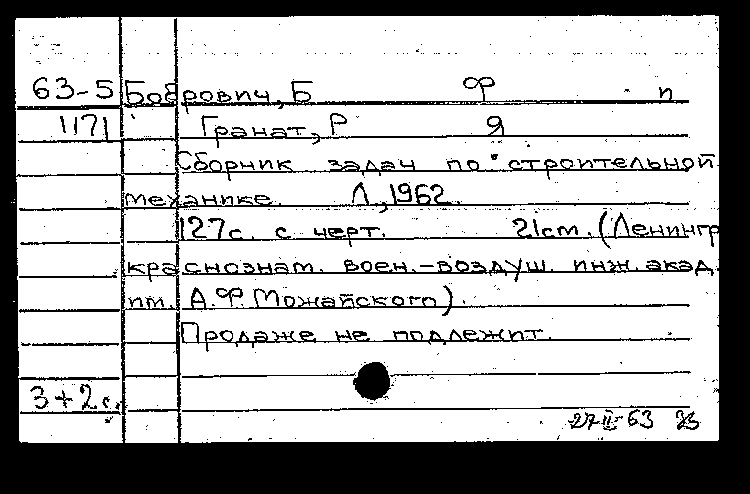 63-5 Бобрович, Б Ф п
1171 Гранат, Р Я
Сборник задач по строительной
механике. Л, 1962.
127с. с черт. 21см. (Ленингр
краснознам. воен.-воздуш. инж. акад.
им. А.Ф. Можайского).
Продаже не подлежит.
3+2с.
27 II-63